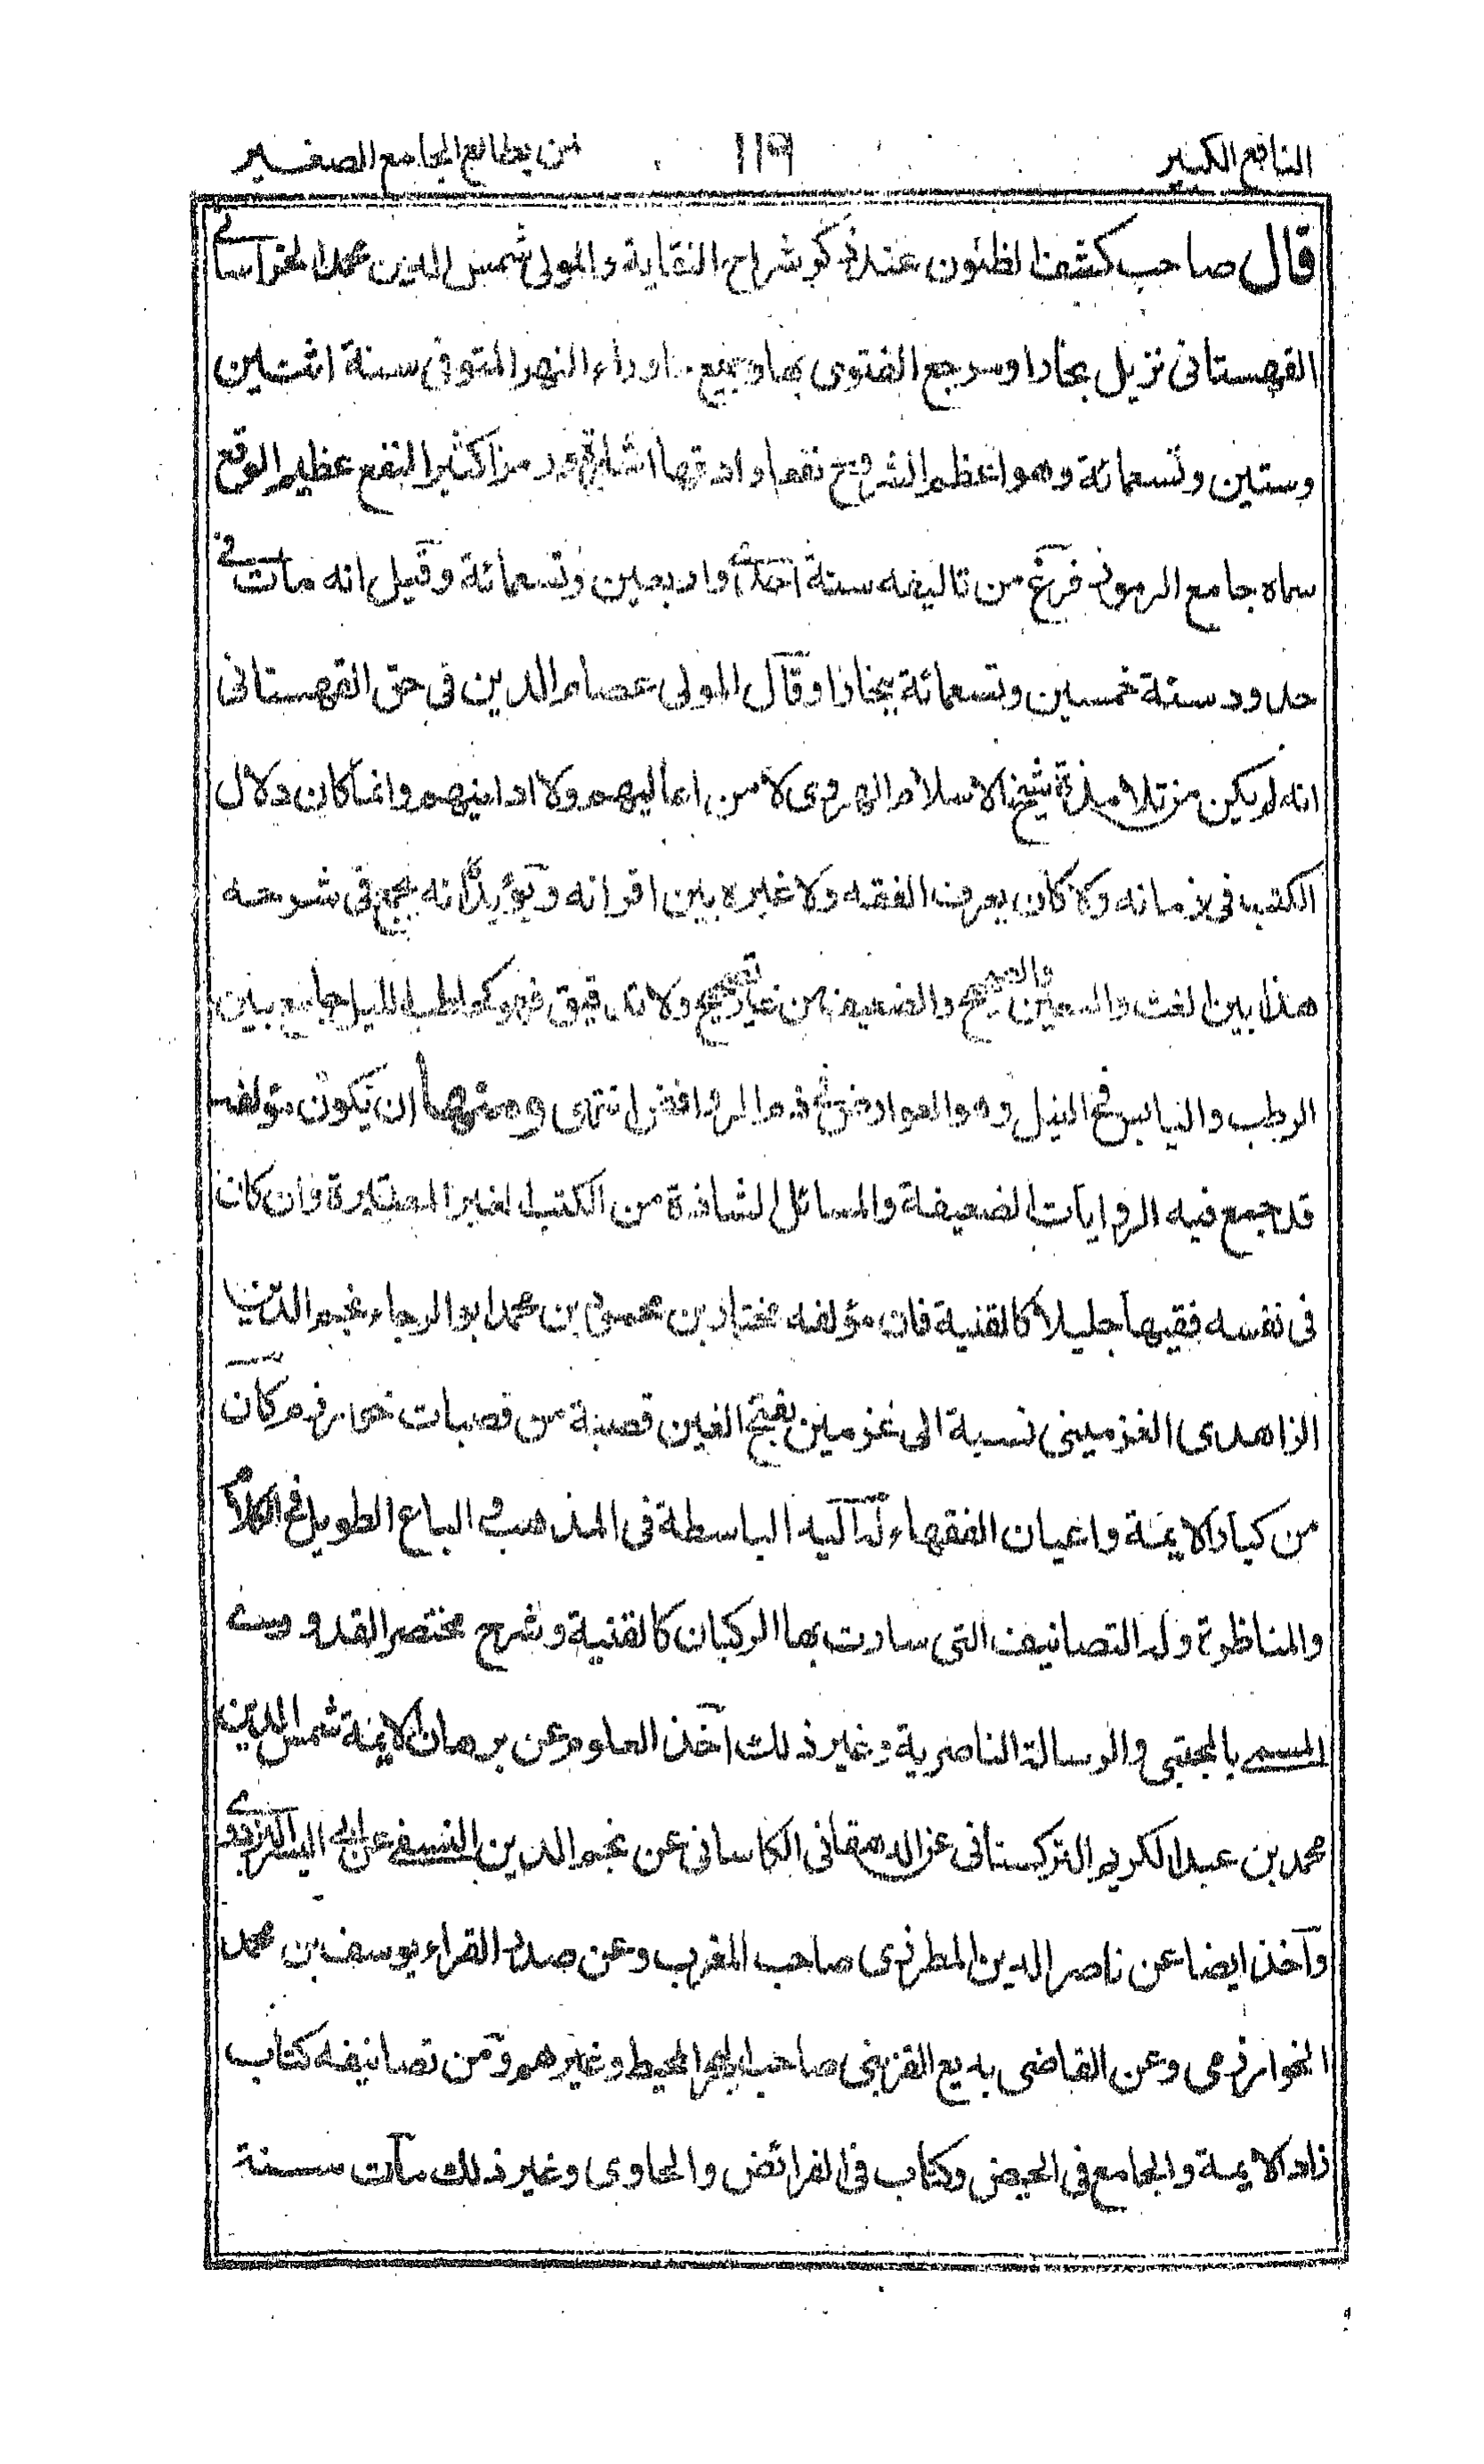 النافع الكبير ١١٩ لمن يطالع الجامع الصغير
قال صاحب كشف الظنون عند ذكر شراح النقاية والمولى شمس الدين محمد الخراساني
القهستانى نزيل بخارا ومرجع الفتوى بها وجميع ما وراء النهر المتوفى سنة اثنتين
وستين وتسعمائة وهو اعظم الشروح نفعا وادقها اشارة ورمزا كثير النفع عظيم الوقع
سماه جامع الرموز فرغ من تاليفه سنة احدى واربعين وتسعمائة وقيل انه مات في
حدود سنة خمسين وتسعمائة ببخارا وقال المولى عصام الدين فى حق القهستانى
انه لم يكن من تلامذة شيخ الاسلام الهروى لا من اعاليهم ولا ادانيهم وانما كان دلال
الكتب فى زمانه ولا كان يعرف الفقه ولا غيره بين اقرانه ويؤيده انه يجمع فى شرحه
هذا بين الغث والسمين والصحيح والضعيف من غير تصحيح ولا تدقيق فهو كحاطب الليل جامع بين
الرطب واليابس فى الليل وهو العوارض فى ذم الروافض انتهى ومنها ان يكون مؤلفه
قد جمع فيه الروايات الضعيفة والمسائل الشاذة من الكتب الغير المعتبرة وان كان
فى نفسه فقيها جليلا كالقنية فان مؤلفه مختار بن محمود بن محمد ابو الرجاء نجم الدين
الزاهدى الغزمينى نسبة الى غزمين بفتح الغين قصبة من قصبات خوارزم كان
من كبار الايمة واعيان الفقهاء له اليد الباسطة فى المذهب و الباع الطويل فى الكلام
والمناظرة وله التصانيف التى سارت بها الركبان كالقنية وشرح مختصر القدورى
المسمى بالمجتبى والرسالة الناصرية وغير ذلك اخذ العلوم عن برهان الايمة شمس الدين
محمد بن عبد الكريم التركستانى عن الدهقانى الكاسانى عن نجم الدين النسفى عن ابى اليسر البزدوى
واخذ ايضا عن ناصر الدين المطرزى صاحب المغرب وعن صدر القراء يوسف بن محمد
الخوارزمى وعن القاضى بديع القزبنى صاحب البحر المحيط وغيرهم ومن تصانيفه كتاب
زاد الايمة والجامع فى الحيض وكتاب فى الفرائض والحاوى وغير ذلك مات سنة